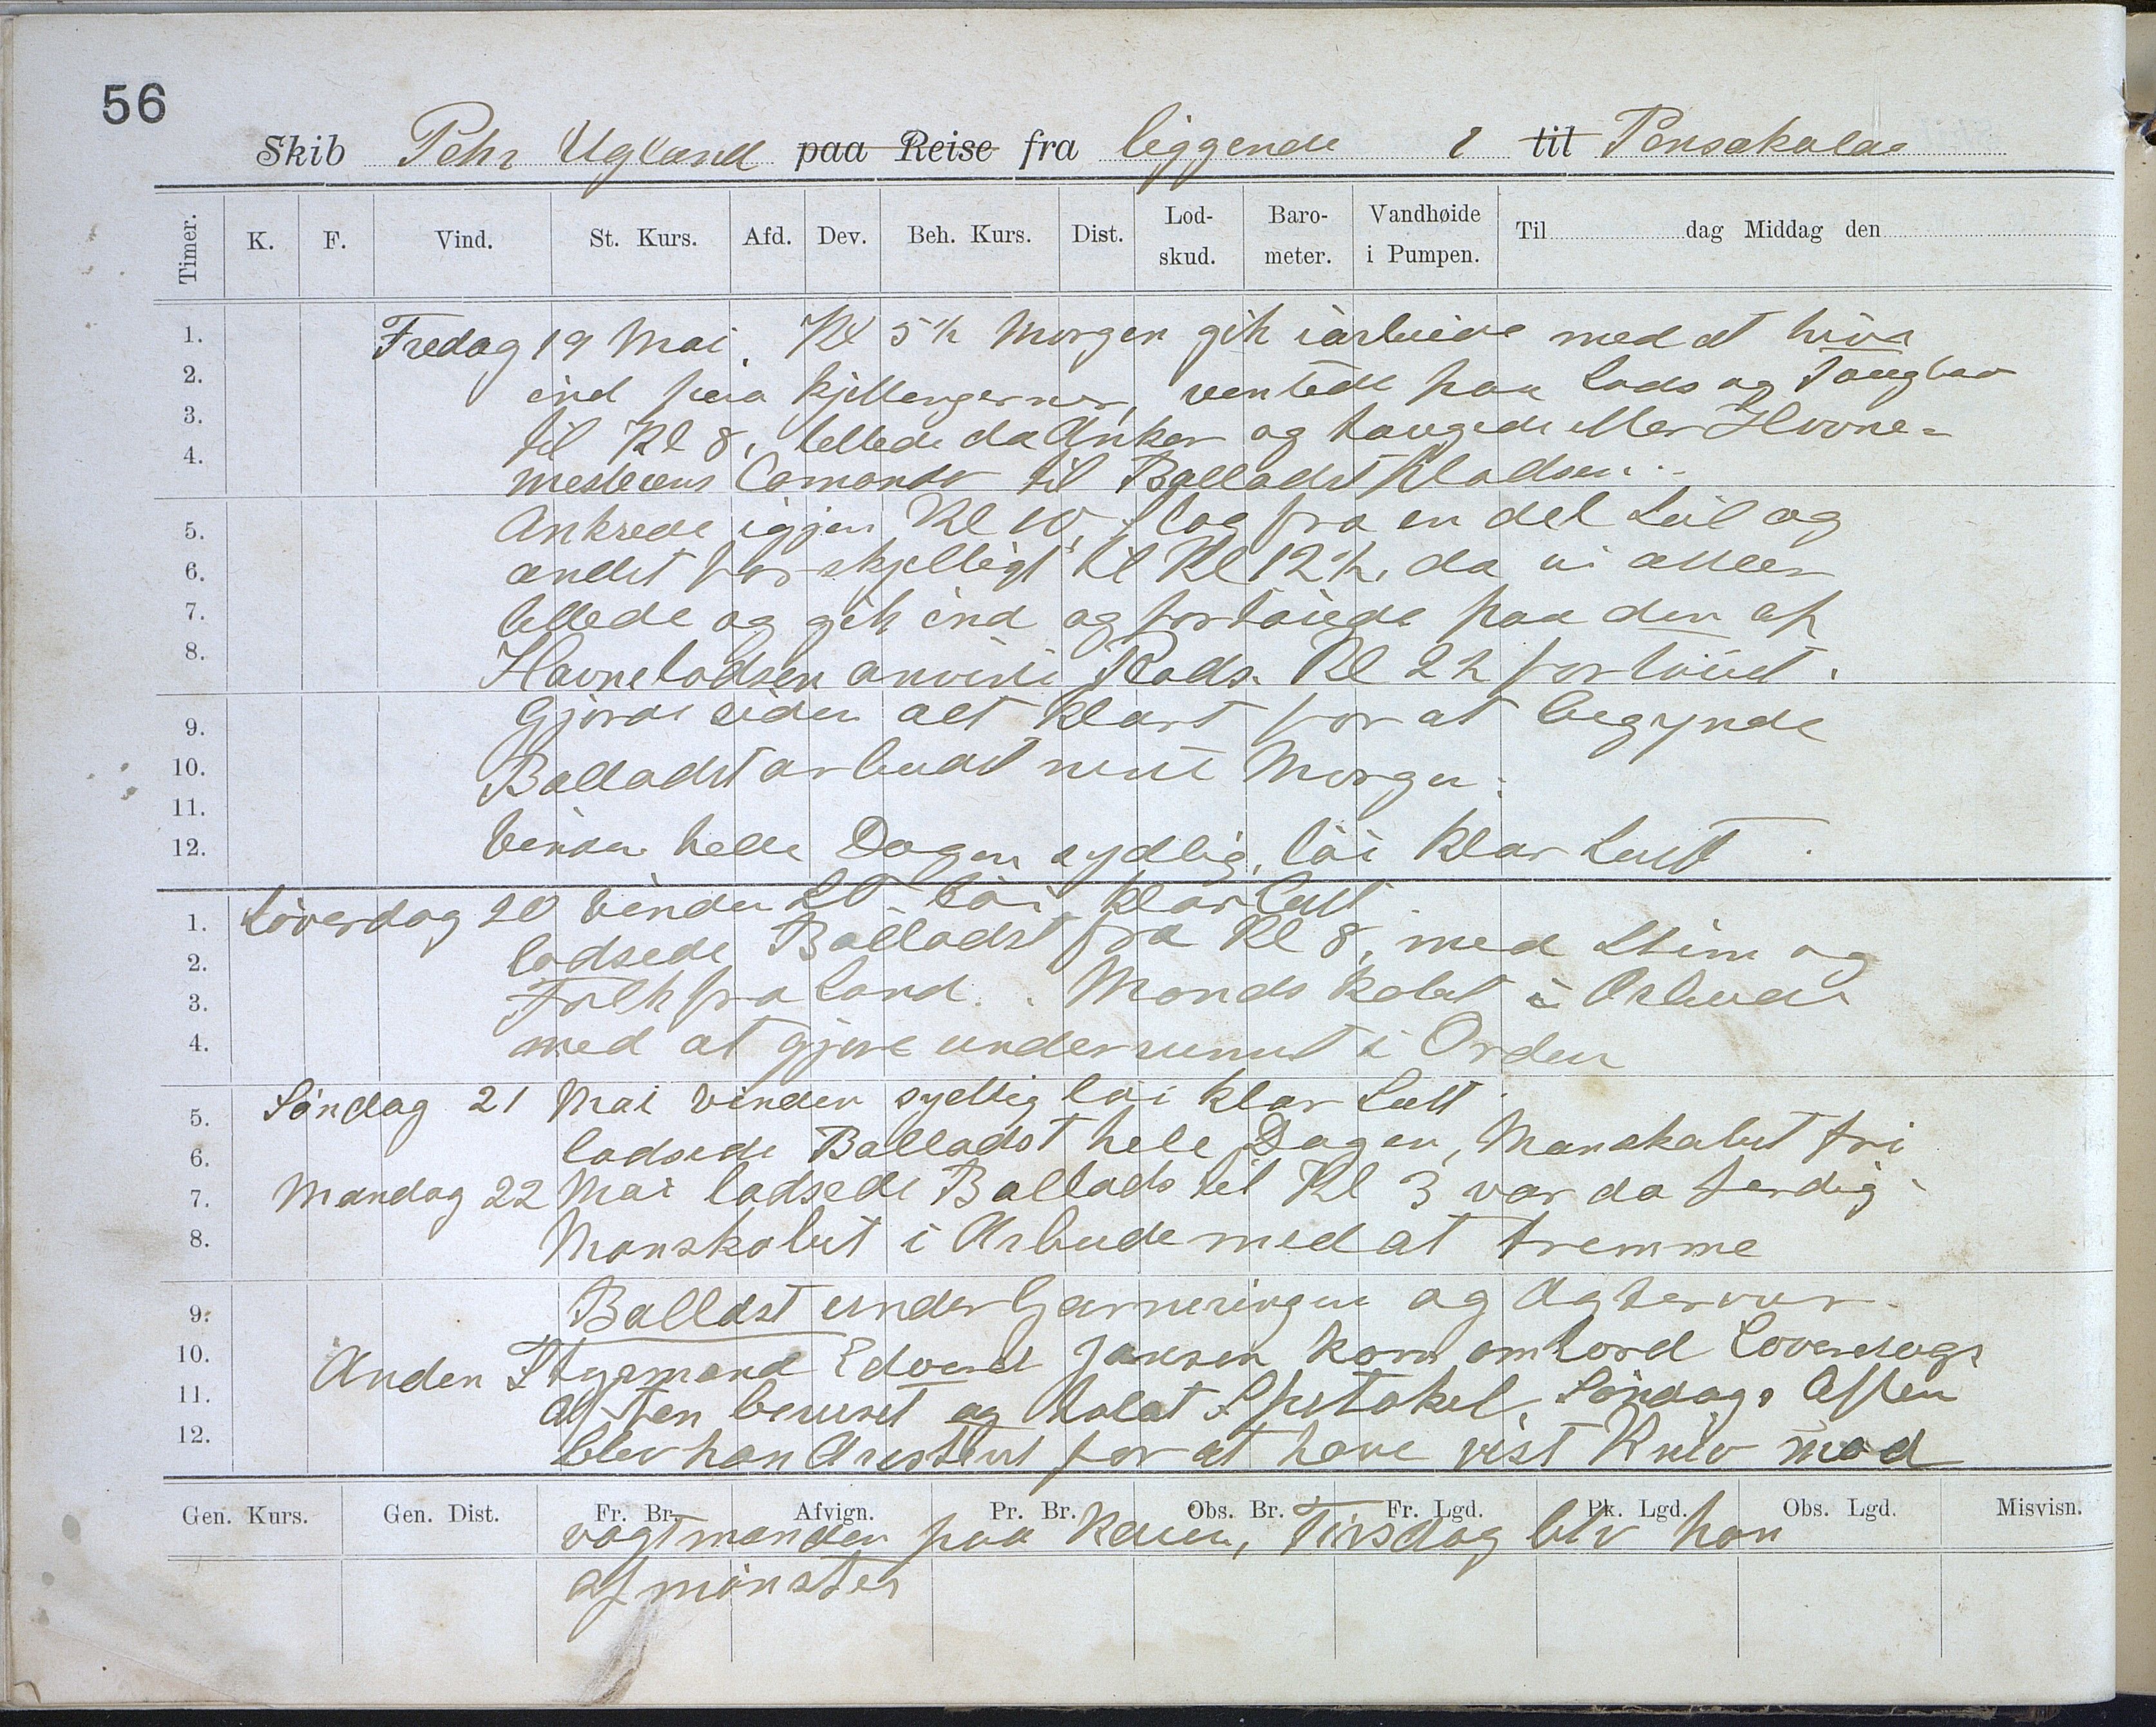 56
Skib Pehr Ugland paa Reise fra liggende i til Pensakola
Timer. K. F. Vind. St. Kurs. Afd. Dev. Beh. Kurs. Dist. Lod-skud. Baro-meter. Vandhøide i Pumpen. Til dag Middag den
1. Fredag 19 Mai. Kl 5 ½ Morgen gik iarbeide med at hive
2. ind paa kjettengerner, ventede paa Lods og Taugbaa
3. til Kl 8, lettede da Anker og taugede efter Havne=
4. mesterens Comando til Balladst Pladsen
5. Ankrede igjen Kl 10, slog fra en del Seil og
6. andet forskjelligt til Kl 12 ½, da vi atter
7. lettede og gik ind og fortøiede paa den af
8. Havnelodsen anviste Plads. Kl 2 ½ fortøiet.
9. Gjorde siden alt klart for at begynde
10. Balladst arbeidet neste Morgen.
11.
12. Vinden hele Dagen sydlig, løi klar Luft
1. Løverdag 20 Vinden SO løi klar Luft
2. lodsede Balladst fra Kl 8, med Stim og
3. Folk fra Land. Mandskabet i Arbeide
4. med at gjøre underrummet i Orden
5. Søndag 21 Mai Vinden sydlig løi klar Luft
6. lodsede Balladst hele Dagen, Manskabet fri
7. Mandag 22 Mai lodsede Ballads til Kl 3 var da ferdig
8. Manskabet i Arbeide med at tremme
9. Ballast under Garneringen og Agterover
10. Anden Stygemand Edvard Jansen kom ombord Løverdags
11. Aften beruset og holdt Spetakel, Søndags Aften
12. blev han Aresteret for at have vist Kniv mod
Gen. Kurs. Gen. Dist. Fr. Br. Afvign. Pr. Br. Obs. Br. Fr. Lgd. Pk. Lgd. Obs. Lgd. Misvisn.
vagtmanden paa Kaien, Tirsdag blv han
afmønster